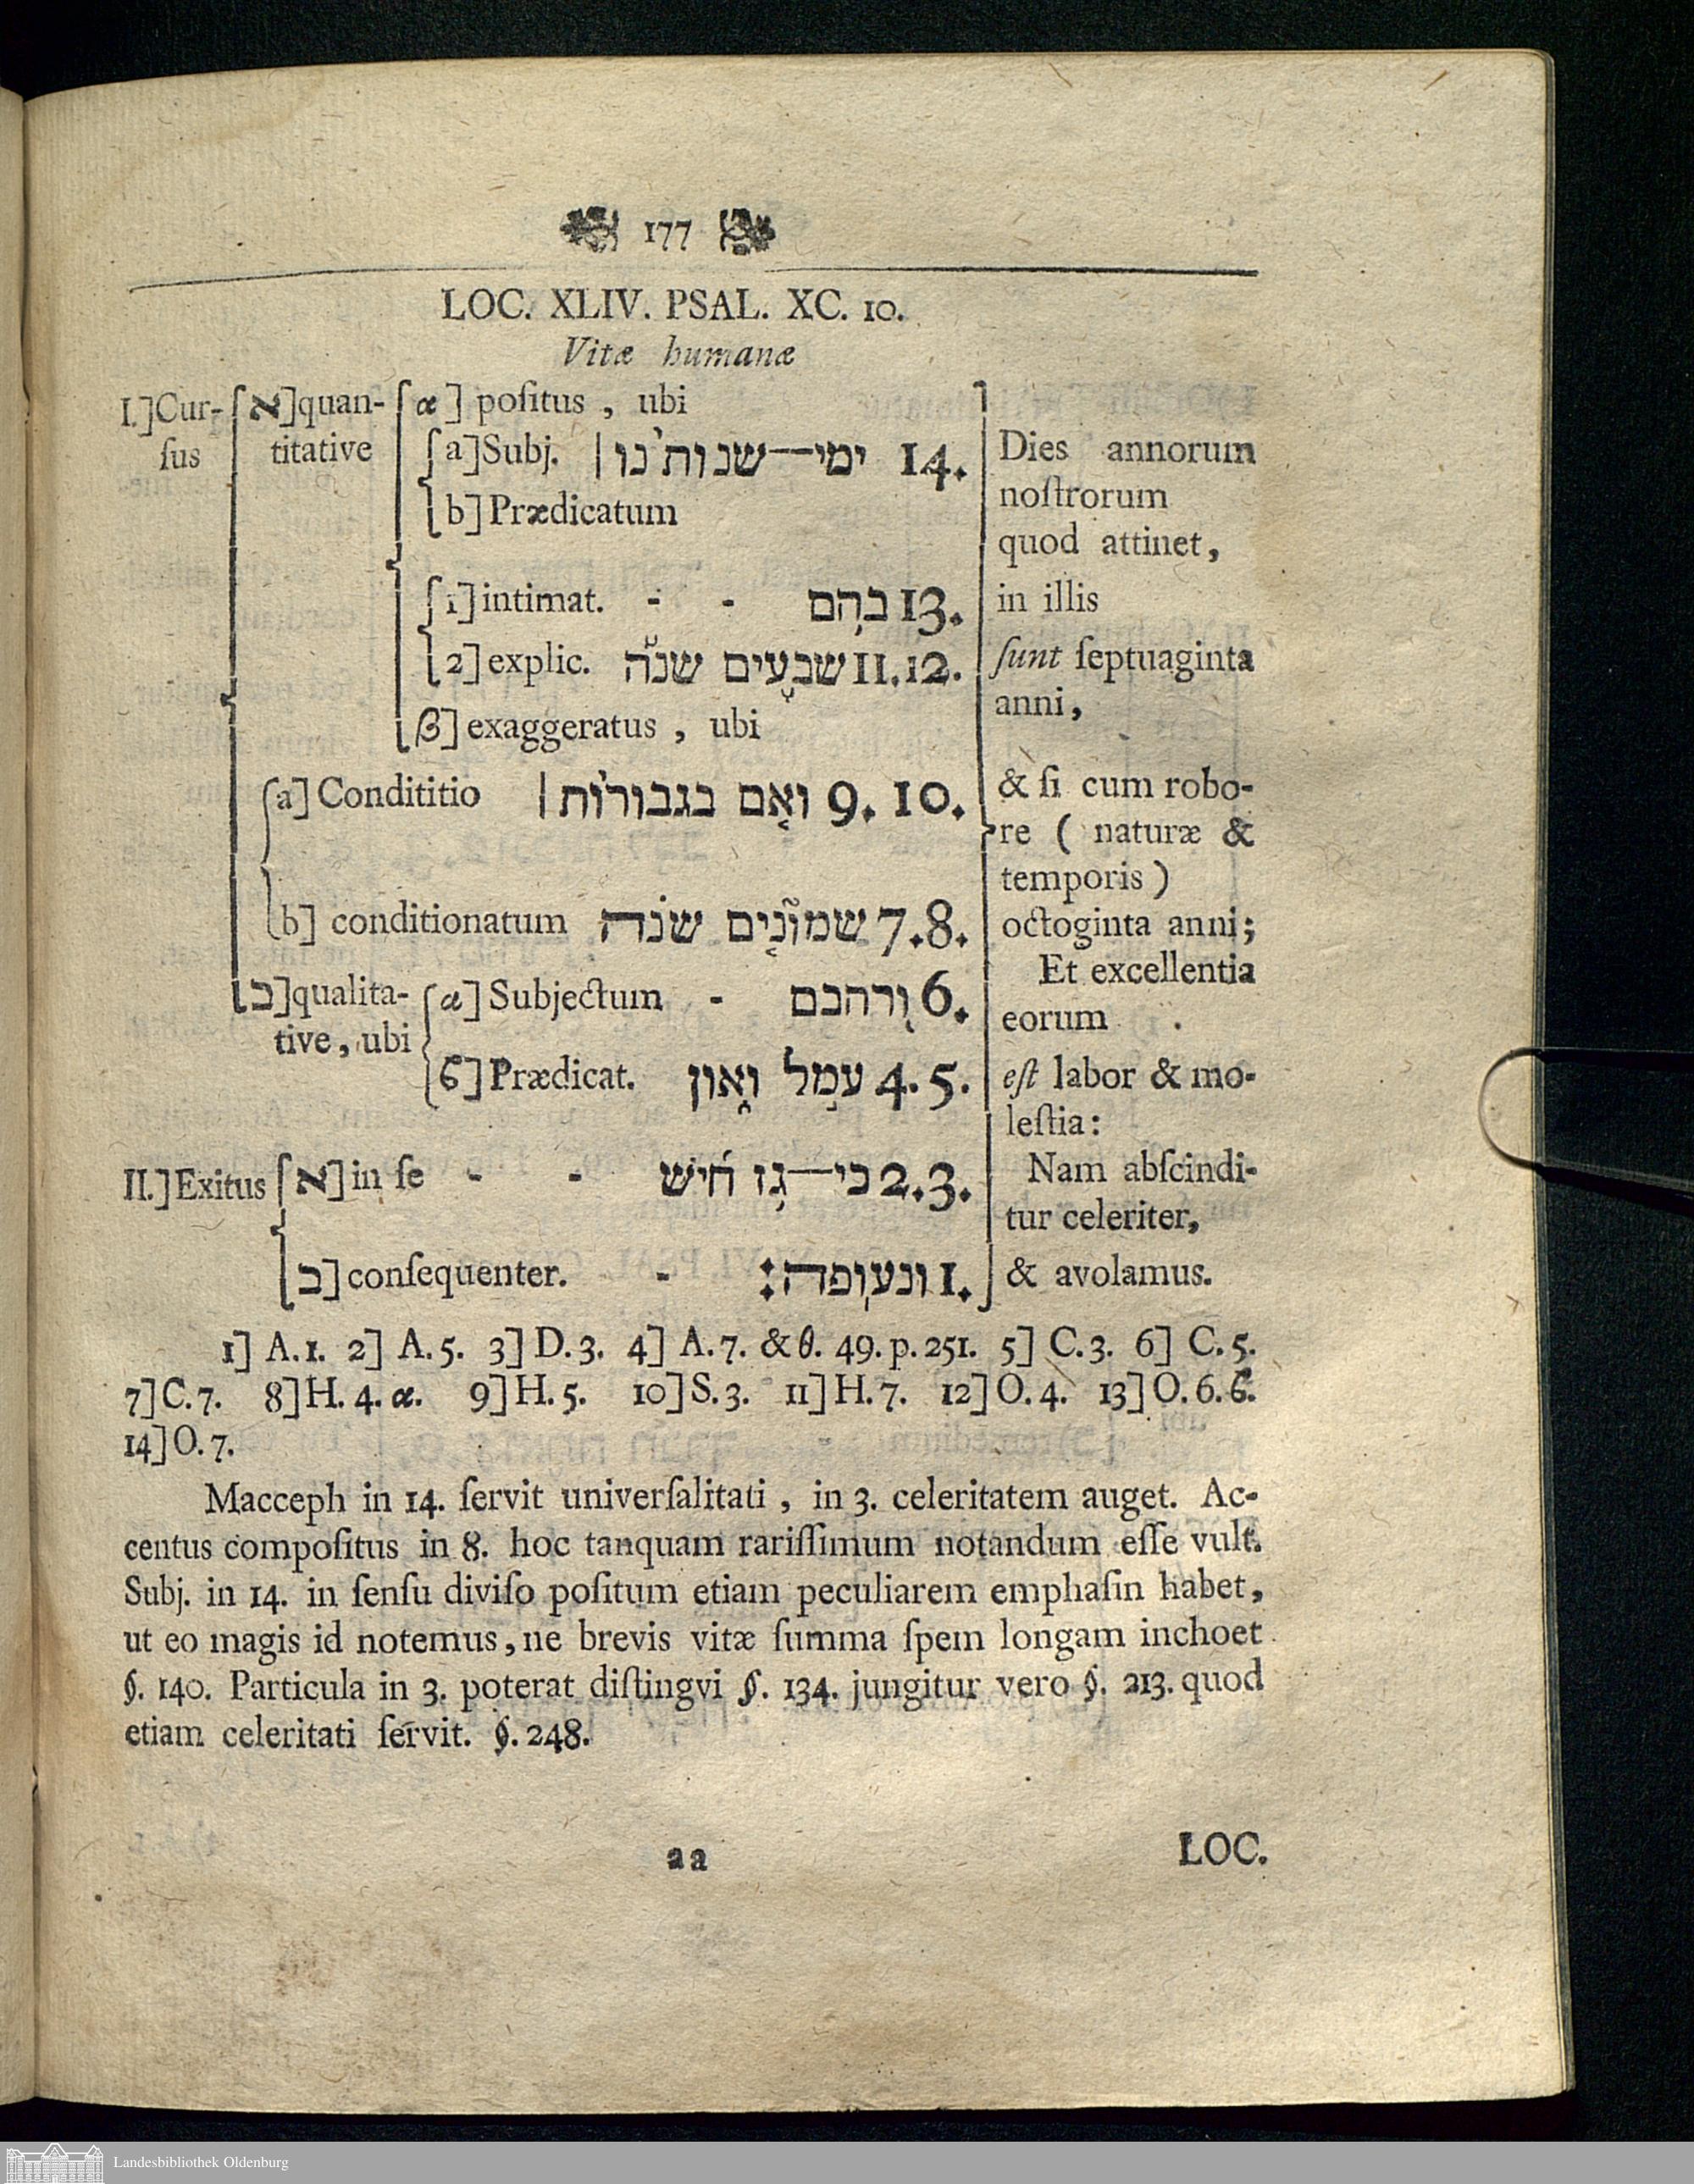 177
LOC. XLIV. PSAL. XC. 10.
Vitæ humanæ
I.]Cur-
ſus
א]quan-
titative
α] poſitus , ubi
a]Subj. ימי—שנות֨נו | 14.
b]Prædicatum
1]intimat. - - בה֥ם 13.
2]explic. שבע֪ים שנ֡ה 11.12.
β]exaggeratus , ubi
a]Condititio וא֤ם בגבור֨ות | 9. 10.
b] conditionatum שמונ֤ים שנ֗ה 7.8.
ב]qualita-
tive, ubi
α] Subjectum - ו֭רהבם 6.
ϐ]Prædicat. עמ֣ל וא֑ון 4.5.
II.]Exitus
א]in ſe - - כי—ג֥ז ח֝יש 2.3.
ב]conſequenter. - ונע֖ופה׃ 1.
Dies annorum
noſtrorum
quod attinet,
in illis
ſunt ſeptuaginta
anni,
& ſi cum robo-
re ( naturæ &
temporis )
octoginta anni;
Et excellentia
eorum
eſt labor & mo-
leſtia:
Nam abſcindi-
tur celeriter,
& avolamus.
1] A.1. 2] A.5. 3] D.3. 4] A.7. & θ. 49. p. 251. 5] C.3. 6] C.5.
7]C.7. 8]H.4.α. 9]H.5. 10]S.3. 11]H.7. 12]O.4. 13]O.6.ϐ.
14]O.7.
Macceph in 14. ſervit univerſalitati , in 3. celeritatem auget. Ac-
centus compoſitus in 8. hoc tanquam rariſſimum notandum eſſe vult.
Subj. in 14. in ſenſu diviſo poſitum etiam peculiarem emphaſin habet,
ut eo magis id notemus, ne brevis vitæ ſumma ſpem longam inchoet
§. 140. Particula in 3. poterat diſtingvi §. 134. jungitur vero §. 213. quod
etiam celeritati ſervit. §. 248.
aa
LOC.
Landesbibliothek Oldenburg